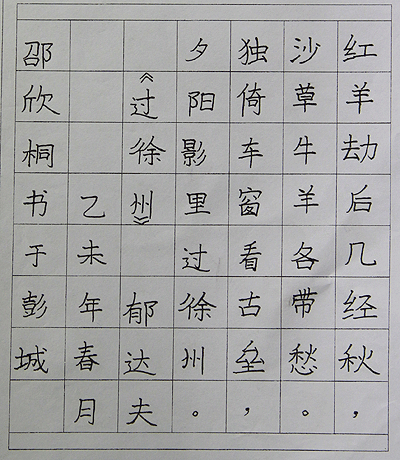 红羊劫后几经秋，
沙草牛羊各带愁。
独倚车窗看古垒，
夕阳影里过徐州。
《过徐州》郁达夫
乙未年春月
邵欣桐书于彭城